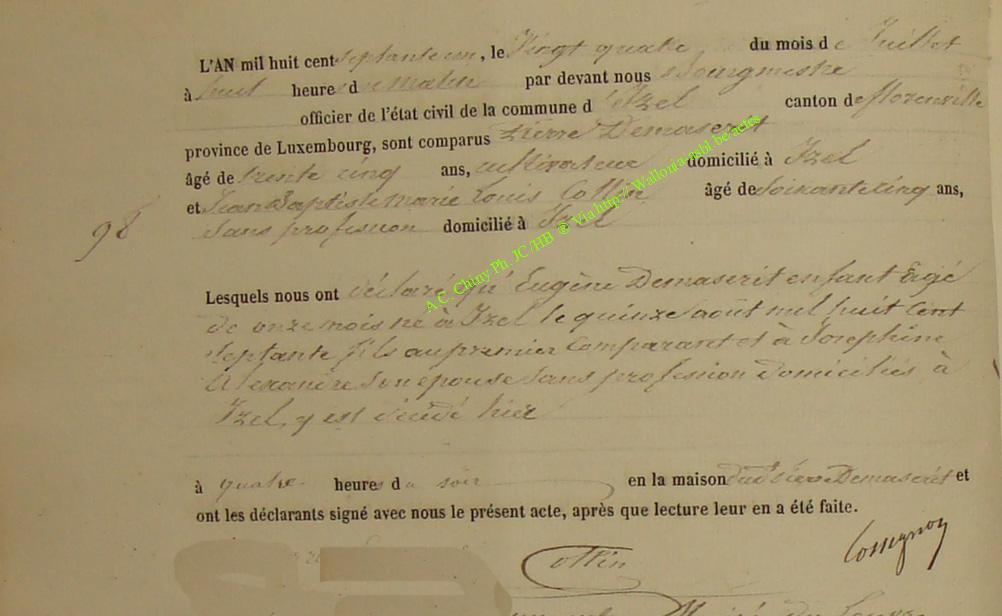 L'AN mil huit cent septante un, le Vingt quatre du mois de Juillet
à huit heures du Matin par devant nous Bourgmestre
officier de l'état civil de la commune d'Izel canton de florenville
province de Luxembourg, sont comparus Pierre Demascrit
âgé de trente cinq ans, cultivateur domicilié à Izel
et Jean Baptiste Marie Louis Collin âgé de Soixante cinq ans,
98 Sans profession domicilié à Izel
A.C. Chiny Ph. JC/HB @ Via http://Wallonia-asbl.be/actes
Lesquels nous ont déclaré qu'Eugène Demascrit enfant âgé
de onze mois né à Izel le quinze août mil huit cent
septante fils au premier Comparant et à Josephine
Alexandre son epouse sans profession domiciliés à
Izel, y est décédé hier
à quatre heures du soir en la maison du dit Demascrit et
ont les déclarants signé avec nous le présent acte, après que lecture leur en a été faite.
Collin